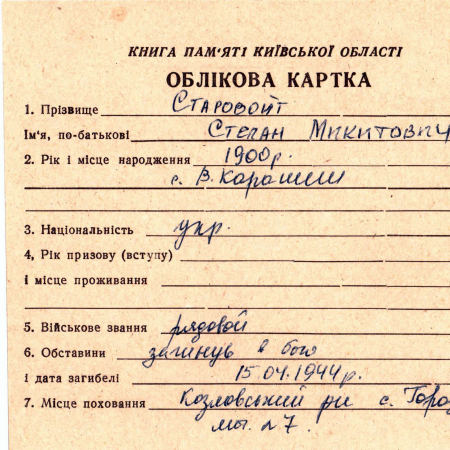 КНИГА ПАМ'ЯТІ КИЇВСЬКОЇ ОБЛАСТІ
ОБЛІКОВА КАРТКА
1. Прізвище Старовойт
Ім'я, по-батькові Степан Микитович
2. Рік і місце народження 1900р.
с. В. Карашин
3. Національність укр.
4, Рік призову (вступу)
і місце проживання
5. Військове звання рядовой
6. Обставини загинув в бою
і дата загибелі 15.04.1944р.
7. Місце поховання Козловський рн с. Горо
мог. 7.